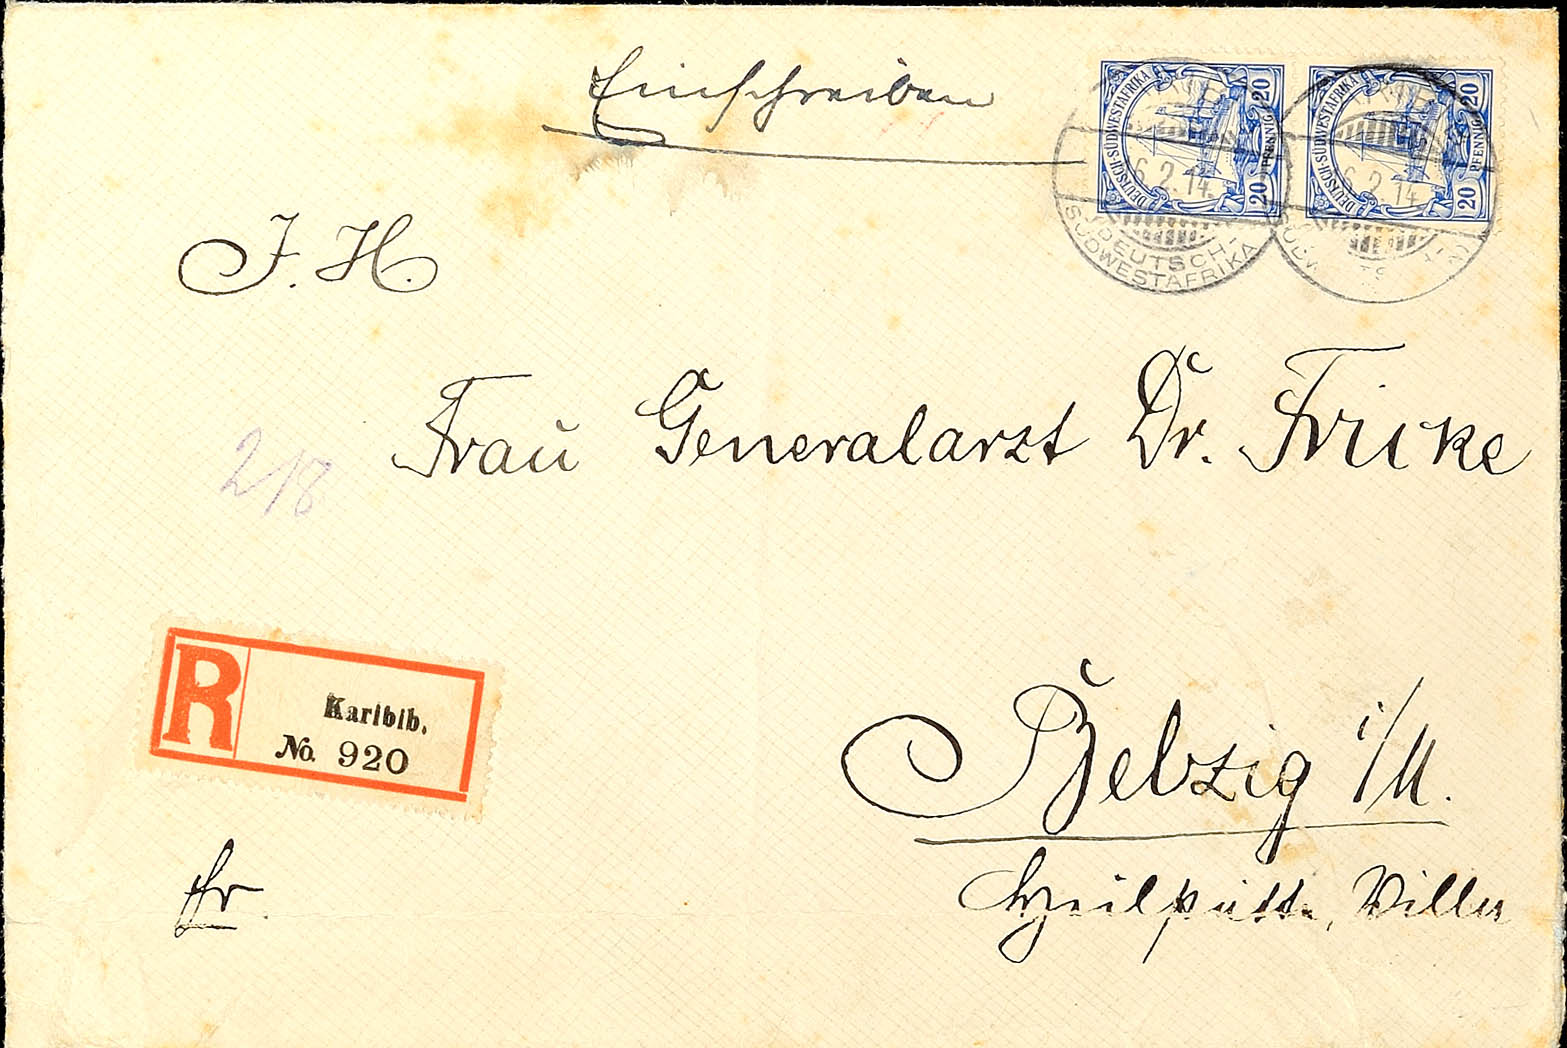 Einschreiben
DEUTSCH-SÜDWESTAFRIKA
20 PFENNIG 20
DEUTSCH-SÜDWESTAFRIKA
20 PFENNIG 20
6.2.14.
DEUTSCH-
SÜDWESTAFRIKA
6.2.14
J. H.
Frau Generalarzt Dr. Fricke
218
R
Karibib.
No. 920
Belzig i/M.
Fr.